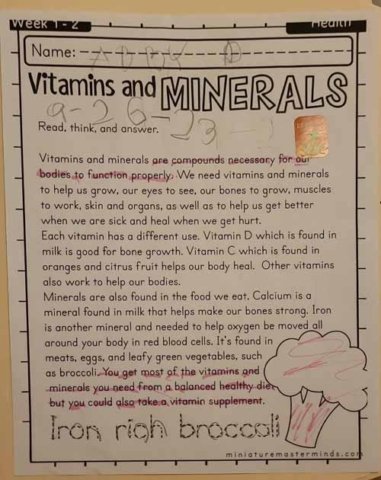 Week 1 - 2 Health
Name: ABBY D
Vitamins and MINERALS
9-26-23
Read, think, and answer.
Vitamins and minerals are compounds necessary for our
bodies to function properly. We need vitamins and minerals
to help us grow, our eyes to see, our bones to grow, muscles
to work, skin and organs, as well as to help us get better
when we are sick and heal when we get hurt.
Each vitamin has a different use. Vitamin D which is found in
milk is good for bone growth. Vitamin C which is found in
oranges and citrus fruit helps our body heal. Other vitamins
also work to help our bodies.
Minerals are also found in the food we eat. Calcium is a
mineral found in milk that helps make our bones strong. Iron
is another mineral and needed to help oxygen be moved all
around your body in red blood cells. It's found in
meats, eggs, and leafy green vegetables, such
as broccoli. You get most of the vitamins and
minerals you need from a balanced healthy diet
but you could also take a vitamin supplement.
Iron righ broccoli
miniaturemasterminds.com